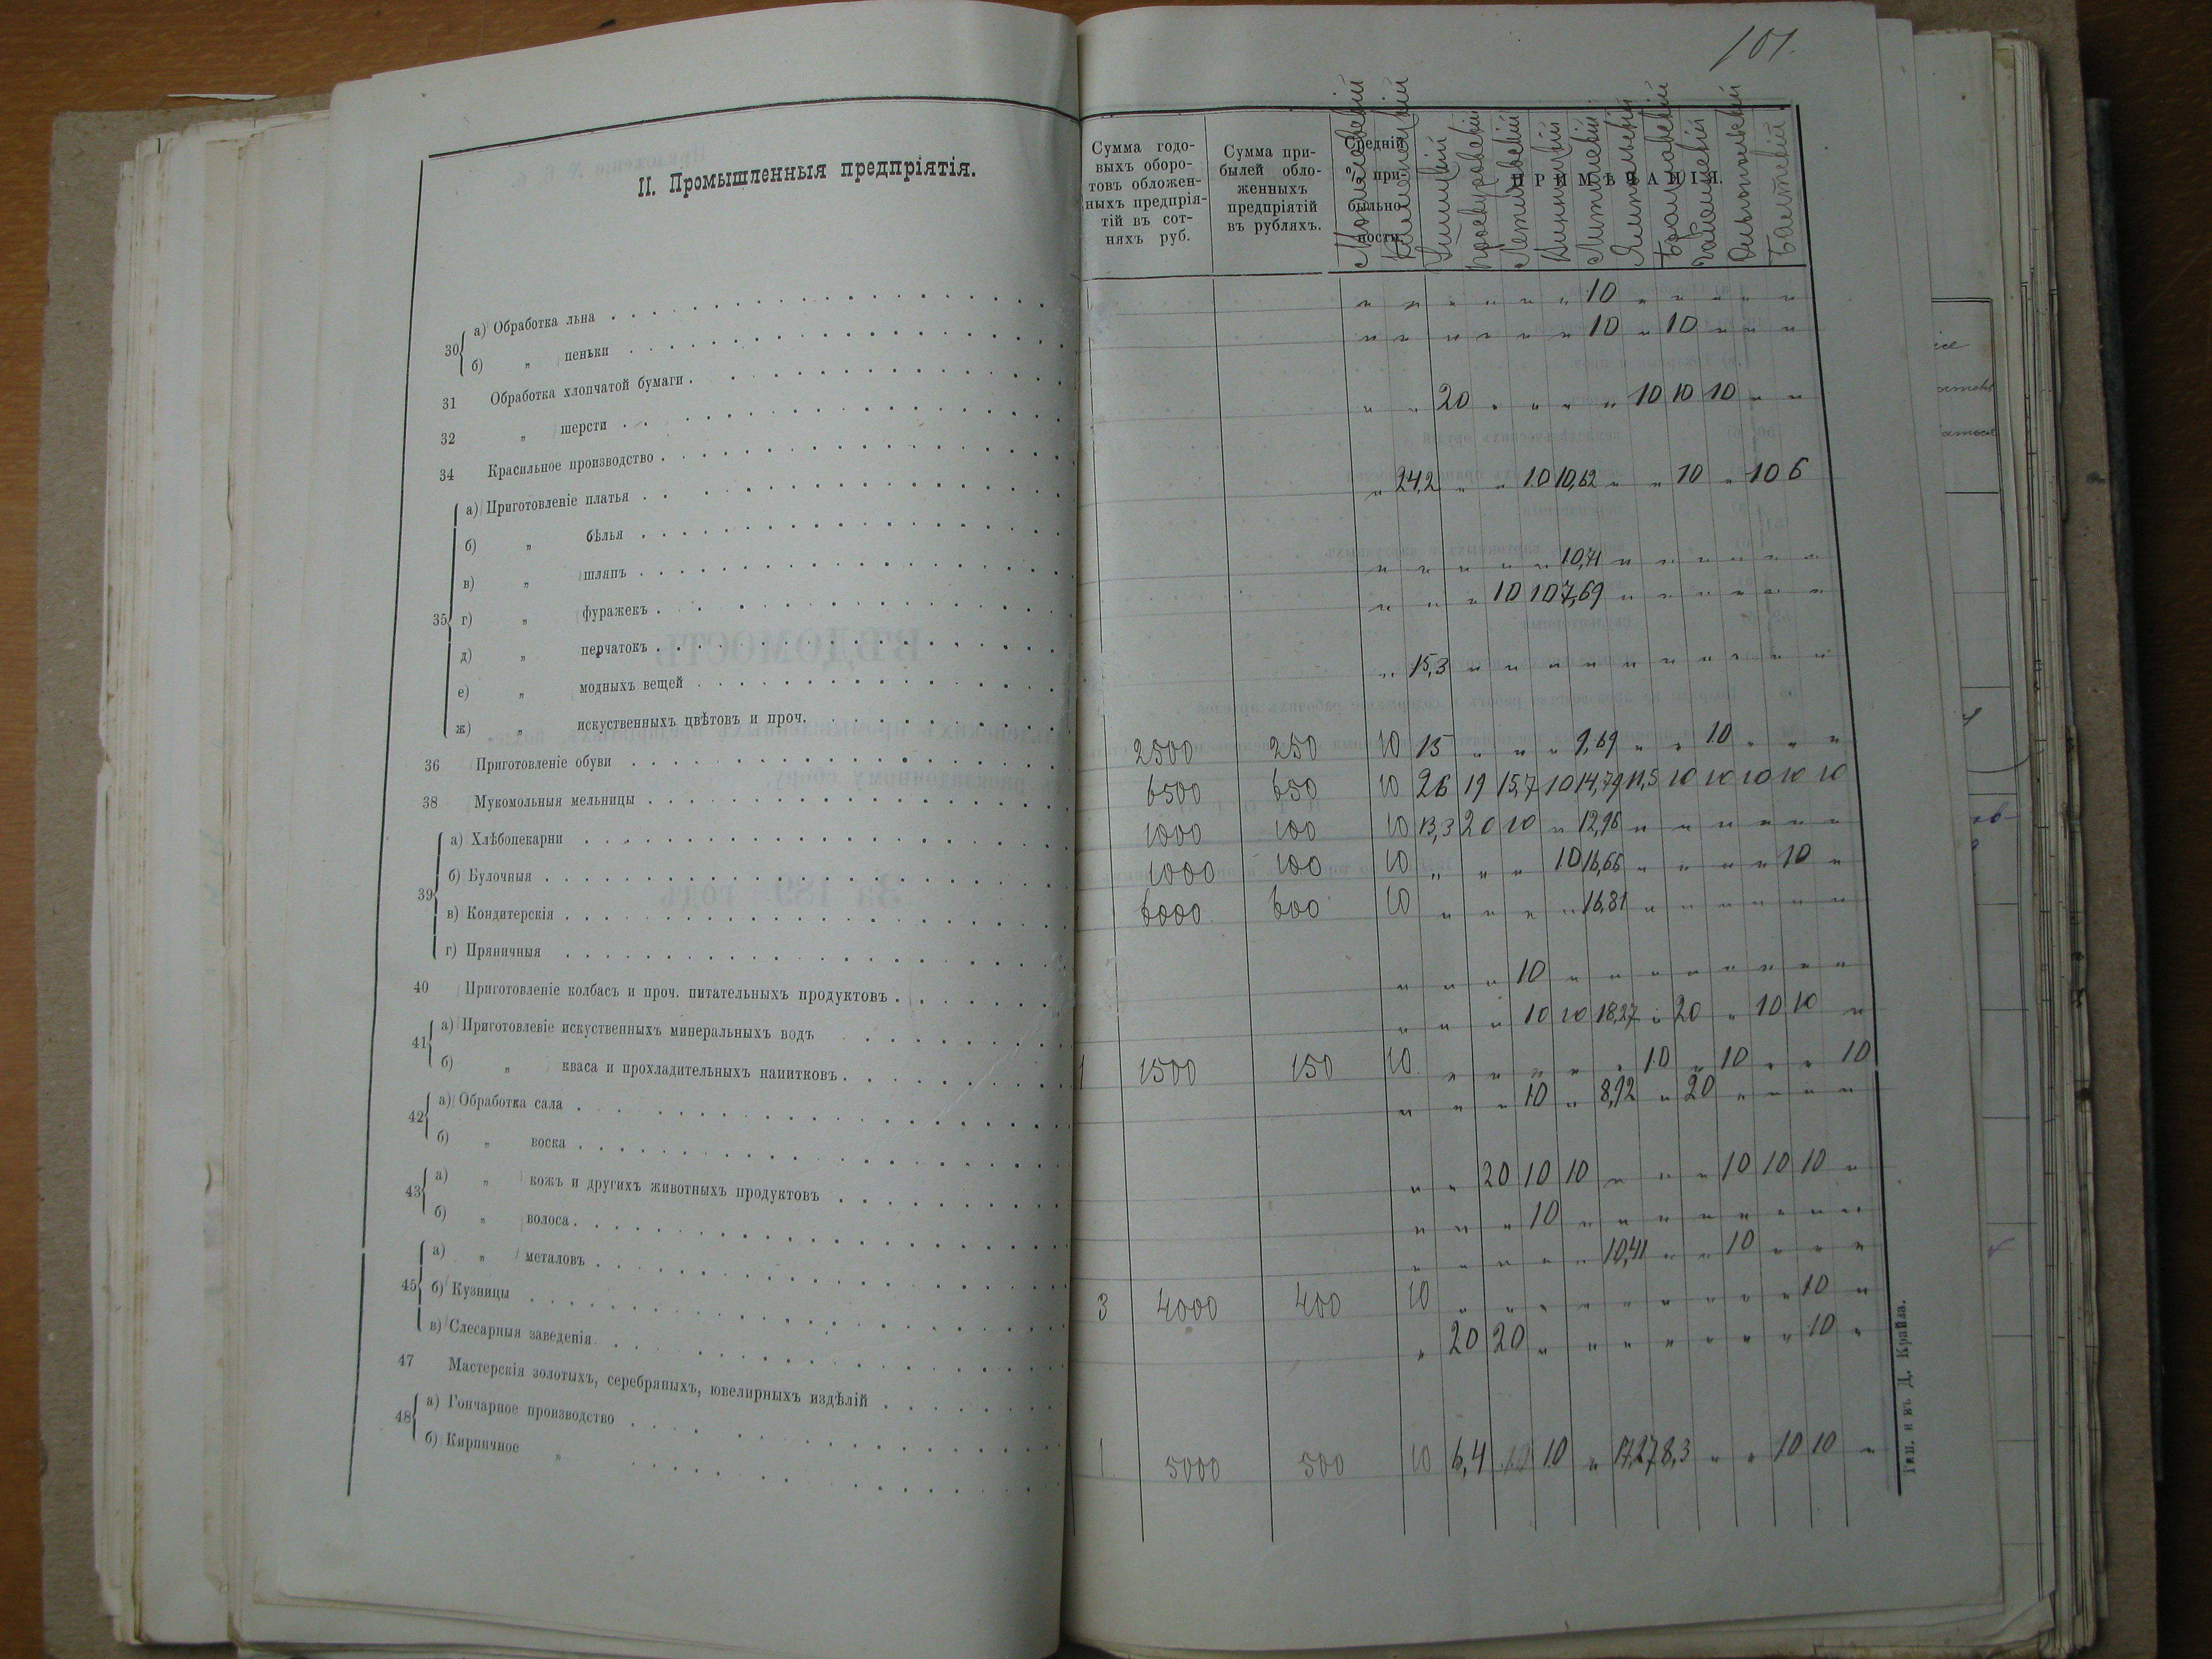 101.
II. Промышленныя предпріятія.
Сумма годо-
выхъ оборо-
товъ обложен-
ныхъ предпрія-
тій въ сот-
няхъ руб.
Сумма при-
былей обло-
женныхъ
предпріятій
въ рубляхъ.
Средній
% при-
быльно-
ности.
ПРИМѢЧАНІЯ.
Могилевскій
Каменецкій
Ушицкій
Проскуровскій
Летичевскій
Винницкій
Литинскій
Ямпольскій
Брацлавскій
Гайсинскій
Ольгопольскій
Балтскій
30 а) Обработка льна " " " " " " 10 " " " " "
б) " пеньки " " " " " " 10 " 10 " " "
31 Обработка хлопчатой бумаги
32 " шерсти " " 20 " " " " 10 10 10 " "
34 Красильное производство
35 а) Приготовленіе платья " 24,2 " " 10 10,62 " " 10 " 10 6
б) " бѣлья
в) " шляпъ " " " " " 10,71 " " " " " "
г) " фуражекъ " " " 10 10 7,69 " " " " " "
д) " перчатокъ
е) " модныхъ вещей " 15,3 " " " " " " " " " "
ж) " искуственныхъ цвѣтовъ и проч.
36 Приготовленіе обуви 2500 250 10 15 " " " 9,69 " " 10 " " "
38 Мукомольныя мельницы 6500 650 10 26 19 15,7 10 14,79 11,5 10 10 10 10 10
39 а) Хлѣбопекарни 1000 100 10 13,3 20 10 " 12,96 " " " " " "
б) Булочныя 1000 100 10 " " " 10 16,66 " " " " 10 "
в) Кондитерскія 6000 600 10 " " " " 16,81 " " " " " "
г) Пряничныя " " " 10 " " " " " " " "
40 Приготовленіе колбасъ и проч. питательныхъ продуктовъ " " " 10 10 18,27 " 20 " 10 10 "
41 а) Приготовленіе искуственныхъ минеральныхъ водъ 1 1500 150 10 " " " " " 10 " 10 " " 10
б) " кваса и прохладительныхъ напитковъ " " " 10 " 8,92 " 20 " " " "
42 а) Обработка сала
б) " воска " " 20 10 10 " " " 10 10 10 "
43 а) " кожъ и другихъ животныхъ продуктовъ " " " 10 " " " " " " " "
б) " волоса " " " " " 10,41 " " 10 " " "
45 а) " металовъ 3 4000 400 10 " " " " " " " " " 10 "
б) Кузницы " 20 20 " " " " " " " 10 "
в) Слесарныя заведенія
47 Мастерскія золотыхъ, серебряныхъ, ювелирныхъ издѣлій
48 а) Гончарное производство 1 5000 500 10 6,4 10 10 " 17,27 8,3 " " 10 10 "
б) Кирпичное "
Тип. и въ Д. Крайза.